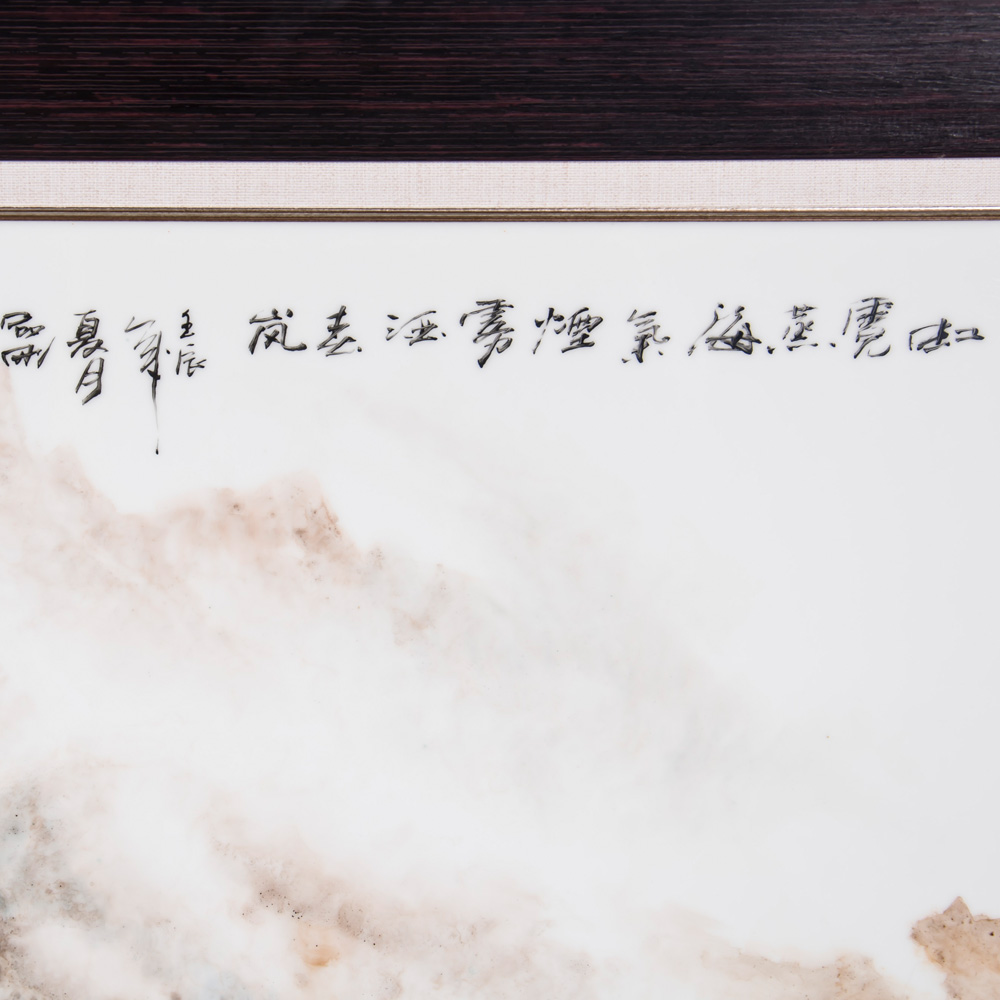 虹霓蒸海氣煙霧湿春岚
壬辰年
夏月